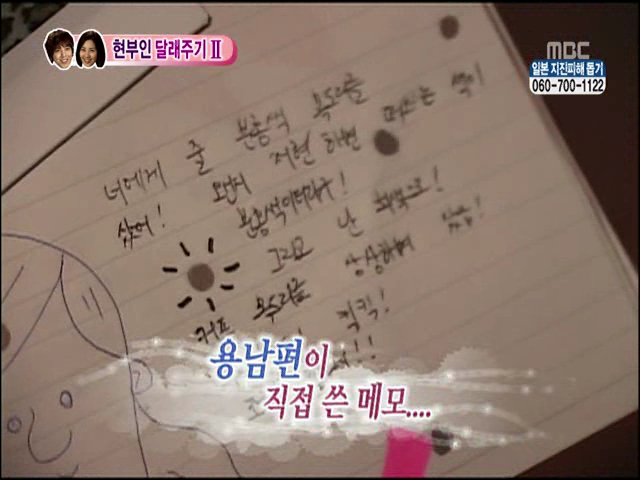 현부인 달래주기 II
MBC
일본 지진피해 돕기
060-700-1122
너에게 줄 분홍색 목도리를
샀어! 왠지 하면 색이
분홍색이더라구!
그리고 난 하늘색으로!
커프 목도리를 상상하며 샀음!
킥킥!
용남편이
직접 쓴 메모....